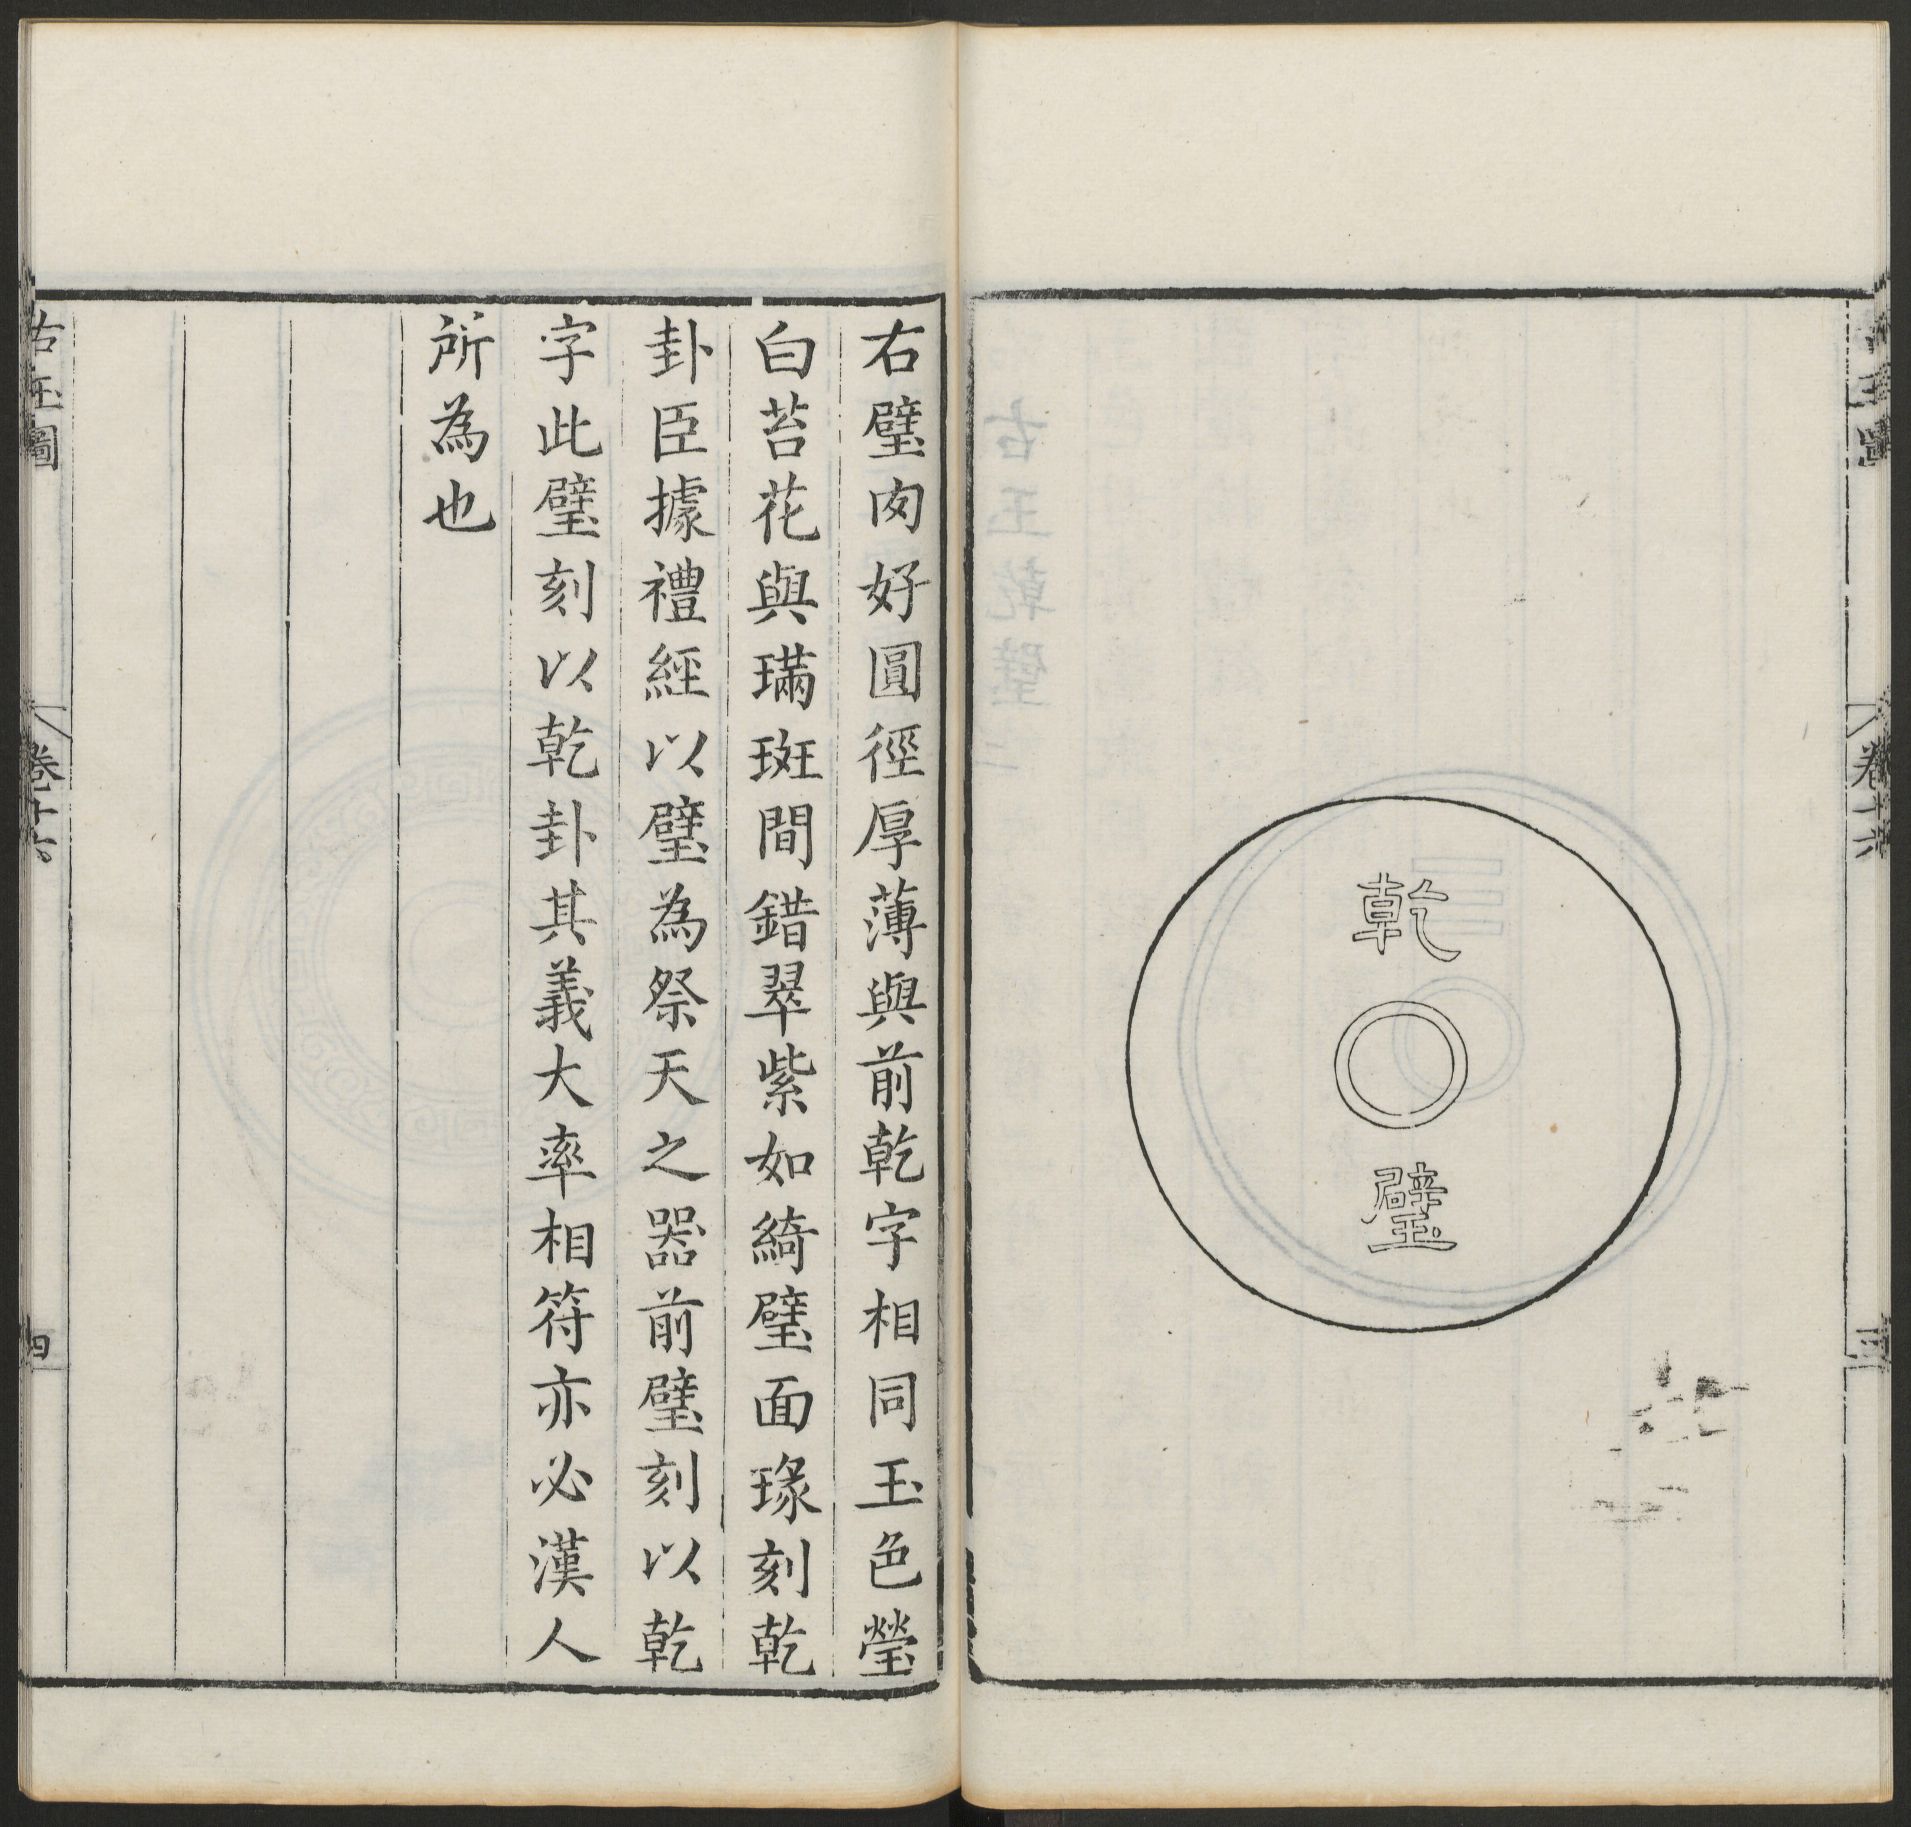 乾
璧
卷十六
三
右璧肉好圓徑厚薄與前乾字相同玉色瑩
白苔花與璊斑間錯翠紫如綺璧面瑑刻乾
卦臣據禮經以璧為祭天之器前璧刻以乾
字此璧刻以乾卦其義大率相符亦必漢人
所為也
古玉圖
卷十六
四